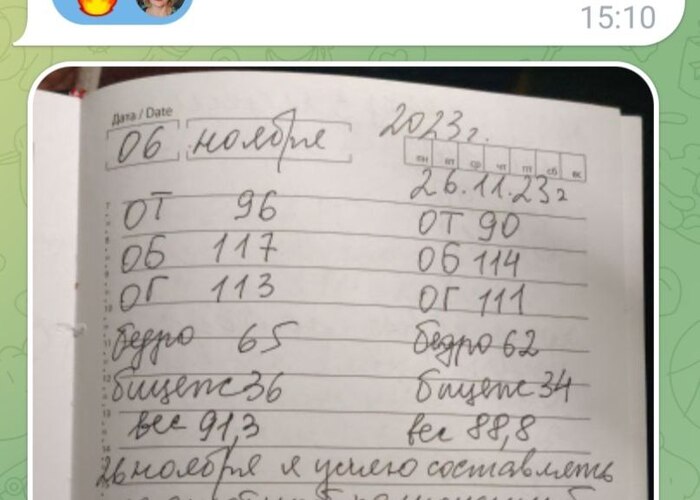 15:10
Дата / Date
06 ноября 2023г.
пн вт ср чт пт сб вс
26.11.23г
ОТ 96 ОТ 90
ОБ 117 ОБ 114
ОГ 113 ОГ 111
бедро 65 бедро 62
бицепс 36 бицепс 34
вес 91,3 вес 88,8
26 ноября я умею составлять